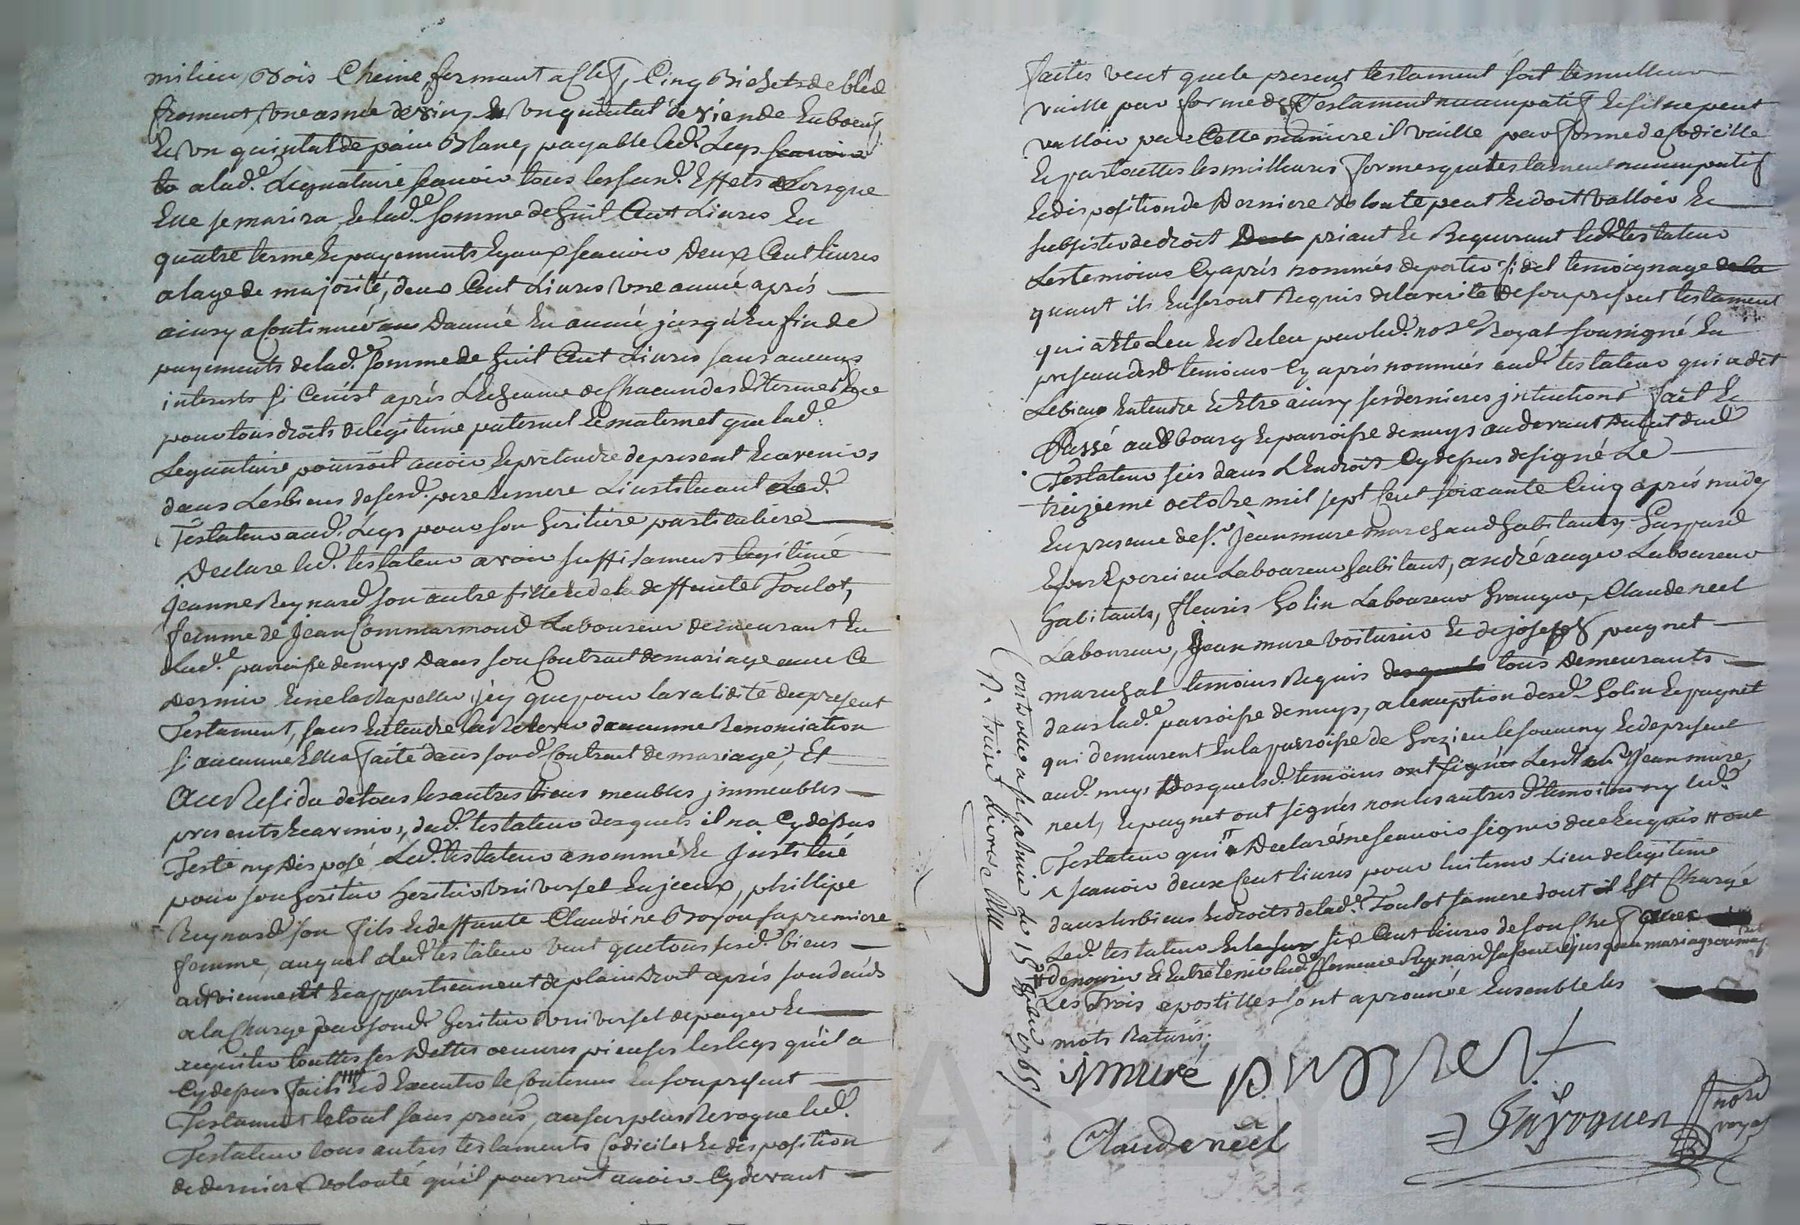 milieu, Bois Cheine fermant a Clef, Cinq Bichets de bled
froment, une asnée de vin, Et un quintal de viende En boeuf
Et un quintal de pain Blanc, payable led. Legs scavoir
a lad.e Leguataire scavoir tous lesfusd. Effets Lorsque
Elle se marira, Et lad.e somme de huit Cent Livres En
quatre terme Et payements Egaux scavoir Deux Cent livres
a lage de majorité, deux Cent Livres une année aprés
ainsy a Continuér Dannée En année jusqu'En fin de
payements de lad.e somme de huit Cent Livres sans aucuns
interests si Cenést aprés L'Echeance de Chacun desd. termes
pour tous droits de legitime paternel Et maternel que lad.e
Leguataire pourroit avoir Et pretendre de present Et avenir
dans Les biens de sesd. pere Et mere L'instituant Led.
Testateur aud. Legs pour son heritiere particuliere
Declare led. testateur avoir suffisament legitimé
Jeanne Reynard son autre fille Et de la deffunte Toulot,
femme de Jean Commarmond Laboureur demeurant En
Lad.e parroisse de meys Dans son Contrat de mariage avec Ce
dernier Et ne la Rapeller jcy que pour la validité du present
Testament, sans Entendre la Relever d'aucune Renonciation
si aucunne Ella faite dans sond. Contrat de mariage, Et
Au Residu de tous les autres biens meubles jmmeubles
presents Et avenir, dud. testateur desquels il na Cydessus
Testé ny Disposé Led. testateur a nommé Et jnstitué
pour son heritier heritier Universel Enjceux, phillipe
Reynard son fils Et deffunte Claudine Bo[...] sa premiere
femme, auquel led. testateur veut que tous sesd. biens
adviennent Et appartiennent de plain Droit aprés son deces
a la Charge par sond. heritier Universel de payer Et
acquiter touttes ses Dettes oeuvres pieuses les legs qu'il a
Cydessus faits Et d'Executer le Contenus En son present
Testament le tout sans procés, au surplus Revoque led.
Testateur tous autres testaments Codiciles Et disposition
de derniere volonté qu'il pourroit avoir Cydevant
faites veut que le present testament soit le meilleur
vaille par forme de Testament nuncupatif Et sil ne peut
valloir par Cette maniere il vaille par forme de Codicille
Et par touttes les meilleures formes que testament nuncupatif
Et disposition de Derniere volonté peut Et doit valloir Et
subsister de droit priant Et Requerant led. testateur
Les temoins Cyaprés nommés de porter fidel temoignage de la
quant ils En seront Requis de la verité de son present testament
qui a été Leu Et Releu par led. no.re Royal soussigné En
presence desd. temoins Cyaprés nommés aud. testateur qui a dit
Le bien Entendre Et Etre ainsy ses dernieres jntentions fait Et
Passé au bourg Et parroisse de meys au devant dud.
Testateur sis dans L'Endroit Cydessus designé Le
treizieme octobre mil sept Cent soixante Cinq aprés midy
En presence de s.r Jean mure marchand habitant, Gaspard
Laboureur habitant, andré auger Laboureur
habitants, fleuris Golin Laboureur Granger, Claude neel
Laboureur, Jean mure voiturier Et de joseph pugnet
marechal temoins Requis tous Demeurants
dans lad.e parroisse de meys, a l'exception desd. Golin Et pugnet
qui demeurent En la parroisse de Grezieu le souveny Et de present
aud. meys Desquels d. temoins ont signés Lesd. Jean mure,
neel, Et pugnet ont signés non les autres d. temoins ny led.
Testateur qui a Declaré ne scavoir signer de ce Enquis
scavoir deux Cent livres pour lui tenir Lieu de legitime
dans les biens Et droits de lad.e Toulot sa mere dont il Est Chargé
Led. testateur six Cent livres de son Chef
De nourir Et Entretenir lad.e Reynard sa soeur jusqu'au mariage
Les Trois apostilles sont aprouvée Ensemble les
mots Raturés.
jmuré pugnet
Claude neel
no.re
royal
Controllé a st galmier le 15
R. treize Livres